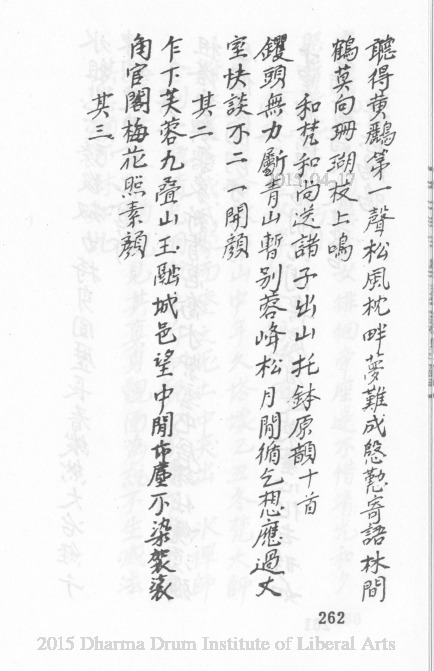 聽得黄鸝第一聲松風枕畔夢難成慇懃寄語林間
鶴莫向珊瑚枝上鳴
和梵和尚送諸子出山托鉢原韻十首
钁頭無力斸青山暫别蓉峰松月間循乞想應過丈
室快談不二一開顔
其二
乍下芙蓉九叠山玉城邑望中閒市塵不染袈裟
角官閣梅花照素顔
其三
262
2015 Dharma Drum Institute of Liberal Arts